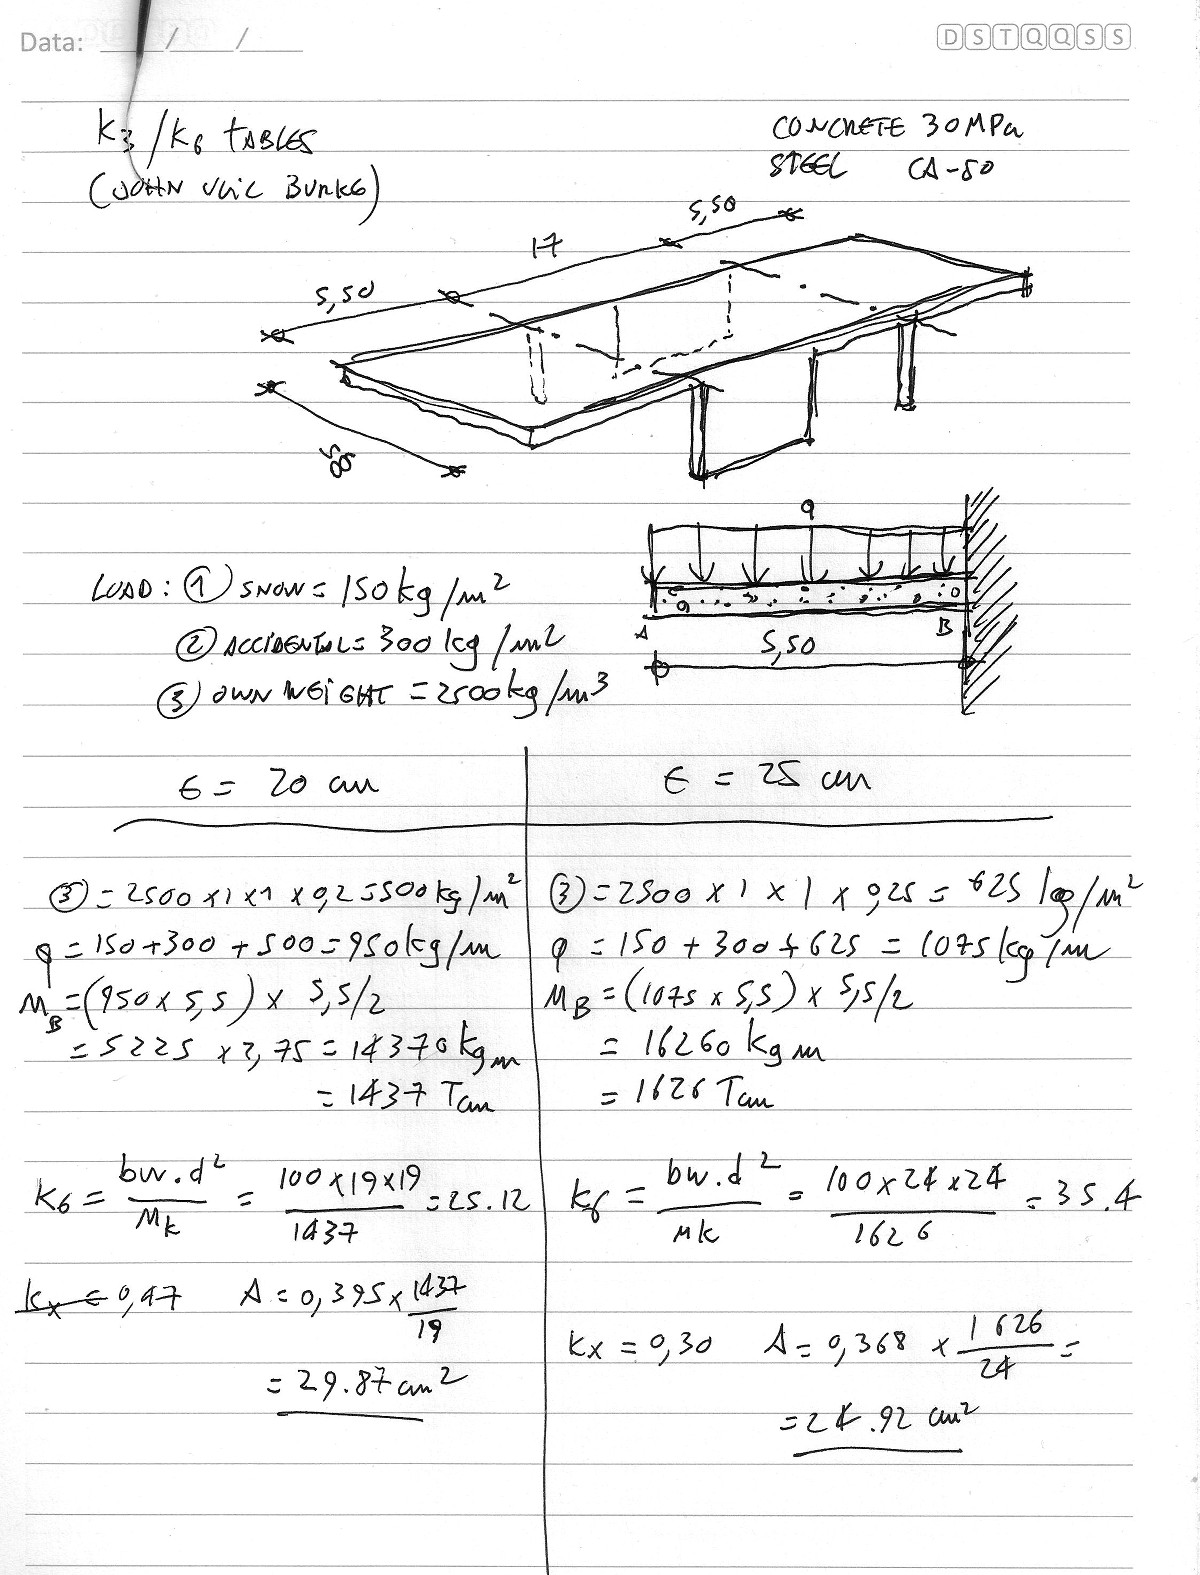 Data: ___/___/___
D S T Q Q S S
K3/K6 TABLES
CONCRETE 30MPa
STEEL CA-50
5,50
17
5,50
5,00
q
LOAD: ① SNOW = 150kg/m²
② ACCIDENTAL = 300 kg/m2
③ OWN WEIGHT = 2500kg/m³
A
B
5,50
E = 20 cm
③ = 2500 x1 x1 x 0,2 = 500kg/m²
q = 150+300 + 500 = 950kg/m
MB = (950 x 5,5) x 5,5/2
= 5225 x 2,75 = 14370 kgm
= 1437 Tcm
K6 = bw.d² / Mk = 100x19x19 / 1437 = 25.12
Kx = 0,47 A = 0,395 x 1437 / 19
= 29.87 cm2
E = 25 cm
③ = 2500 x 1 x 1 x 0,25 = 625 kg/m²
q = 150 + 300 + 625 = 1075 kg/m
MB = (1075 x 5,5) x 5,5/2
= 16260 kgm
= 1626 Tcm
K6 = bw.d² / Mk = 100 x 24 x 24 / 1626 = 35.4
Kx = 0,30 A = 0,368 x 1626 / 24 =
= 24.92 cm²